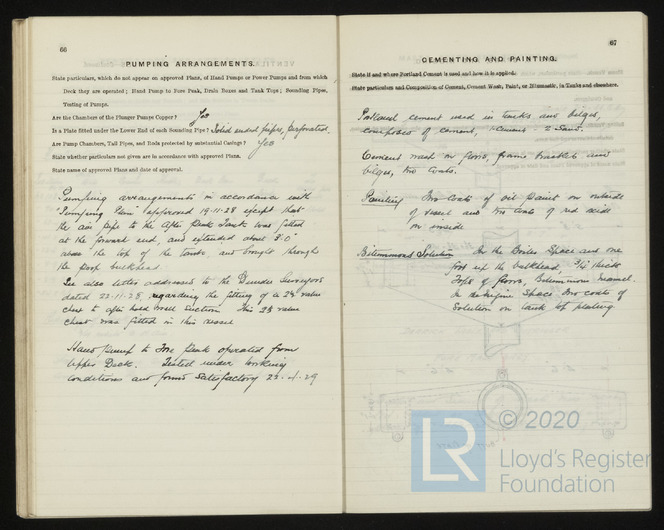 66
PUMPING ARRANGEMENTS.
State particulars, which do not appear on approved Plans, of Hand Pumps or Power Pumps and from which
Deck they are operated; Hand Pump to Fore Peak, Drain Boxes and Tank Tops; Sounding Pipes,
Testing of Pumps.
Are the Chambers of the Plunger Pumps Copper? Yes
Is a Plate fitted under the Lower End of each Sounding Pipe? Solid ended pipes, perforated.
Are Pump Chambers, Tail Pipes, and Rods protected by substantial Casings? Yes
State whether particulars not given are in accordance with approved Plans.
State name of approved Plans and date of approval.
Pumping arrangements in accordance with
"Pumping Plan" approved 19-11-28 except that
the air pipe to the After Peak Tank was fitted
at the forward end, and extended about 3'0"
above the top of the tank and brought through
the poop bulkhead.
See also letter addressed to the Dundee Surveyors
dated 22-11-28 regarding the fitting of a 2½ valve
chest to after hold well suction. This 2½ valve
chest was fitted in this vessel
Hand pump to Fore Peak operated from
Upper Deck. Tested under working
conditions and found satisfactory 23-4-29
67
CEMENTING AND PAINTING.
State if and where Portland Cement is used and how it is applied.
State particulars and Composition of Cement, Cement Wash, Paint, or Bitumastic, in Tanks and elsewhere.
Portland cement used in tanks and bilges,
composed of cement, 2 Sand.
Cement wash on floors, frame brackets and
bilges, two coats.
Painting Two coats of oil paint on outside
of vessel and two coats of red oxide
on inside
Bitummous Solution In the Boiler Space and one
foot up the bulkhead, 3/16 thick
Tops of floors, Bitummous enamel.
In the Engine Space Two coats of
Solution on tank top plating
LR
© 2020
Lloyd's Register
Foundation